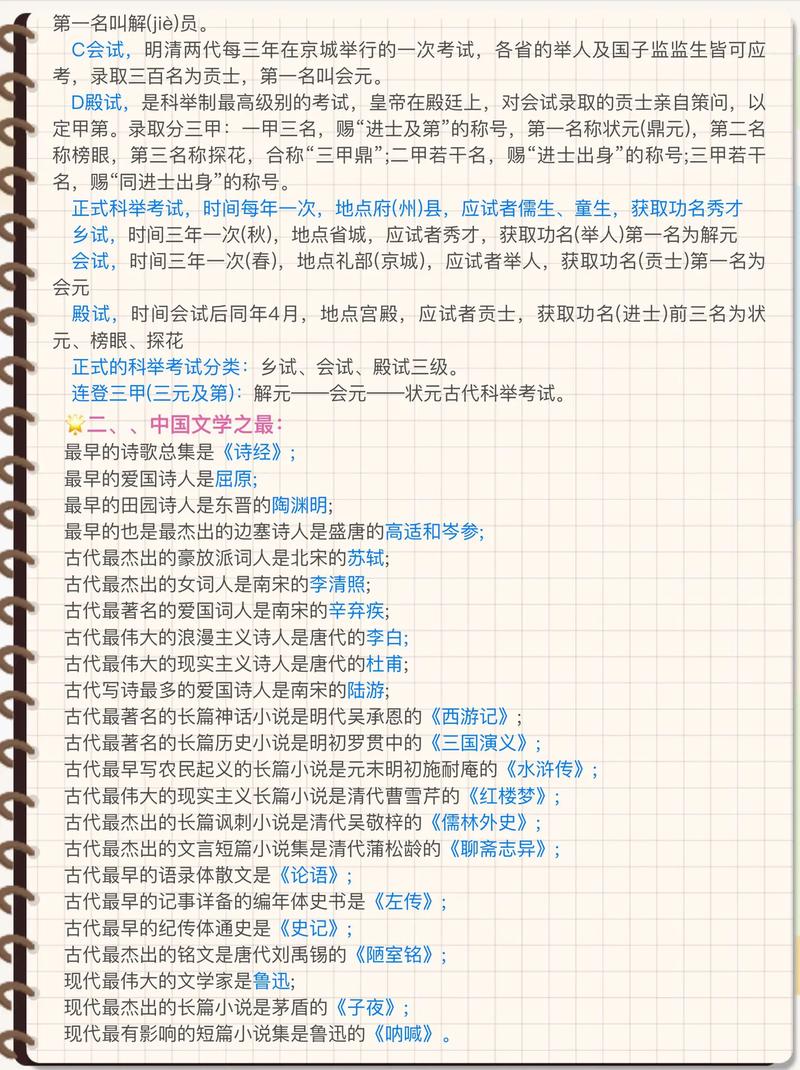 第一名叫解(jiè)员。
C会试，明清两代每三年在京城举行的一次考试，各省的举人及国子监监生皆可应
考，录取三百名为贡士，第一名叫会元。
D殿试，是科举制最高级别的考试，皇帝在殿廷上，对会试录取的贡士亲自策问，以
定甲第。录取分三甲：一甲三名，赐“进士及第”的称号，第一名称状元(鼎元)，第二名
称榜眼，第三名称探花，合称“三甲鼎”;二甲若干名，赐“进士出身”的称号;三甲若干
名，赐“同进士出身”的称号。
正式科举考试，时间每年一次，地点府(州)县，应试者儒生、童生，获取功名秀才
乡试，时间三年一次(秋)，地点省城，应试者秀才，获取功名(举人)第一名为解元
会试，时间三年一次(春)，地点礼部(京城)，应试者举人，获取功名(贡士)第一名为
会元
殿试，时间会试后同年4月，地点宫殿，应试者贡士，获取功名(进士)前三名为状
元、榜眼、探花
正式的科举考试分类：乡试、会试、殿试三级。
连登三甲(三元及第)：解元——会元——状元古代科举考试。
二、、中国文学之最：
最早的诗歌总集是《诗经》;
最早的爱国诗人是屈原;
最早的田园诗人是东晋的陶渊明;
最早的也是最杰出的边塞诗人是盛唐的高适和岑参;
古代最杰出的豪放派词人是北宋的苏轼;
古代最杰出的女词人是南宋的李清照;
古代最著名的爱国词人是南宋的辛弃疾;
古代最伟大的浪漫主义诗人是唐代的李白;
古代最伟大的现实主义诗人是唐代的杜甫;
古代写诗最多的爱国诗人是南宋的陆游;
古代最著名的长篇神话小说是明代吴承恩的《西游记》;
古代最著名的长篇历史小说是明初罗贯中的《三国演义》;
古代最早写农民起义的长篇小说是元末明初施耐庵的《水浒传》;
古代最伟大的现实主义长篇小说是清代曹雪芹的《红楼梦》;
古代最杰出的长篇讽刺小说是清代吴敬梓的《儒林外史》;
古代最杰出的文言短篇小说集是清代蒲松龄的《聊斋志异》;
古代最早的语录体散文是《论语》;
古代最早的记事详备的编年体史书是《左传》;
古代最早的纪传体通史是《史记》;
古代最杰出的铭文是唐代刘禹锡的《陋室铭》;
现代最伟大的文学家是鲁迅;
现代最杰出的长篇小说是茅盾的《子夜》;
现代最有影响的短篇小说集是鲁迅的《呐喊》。